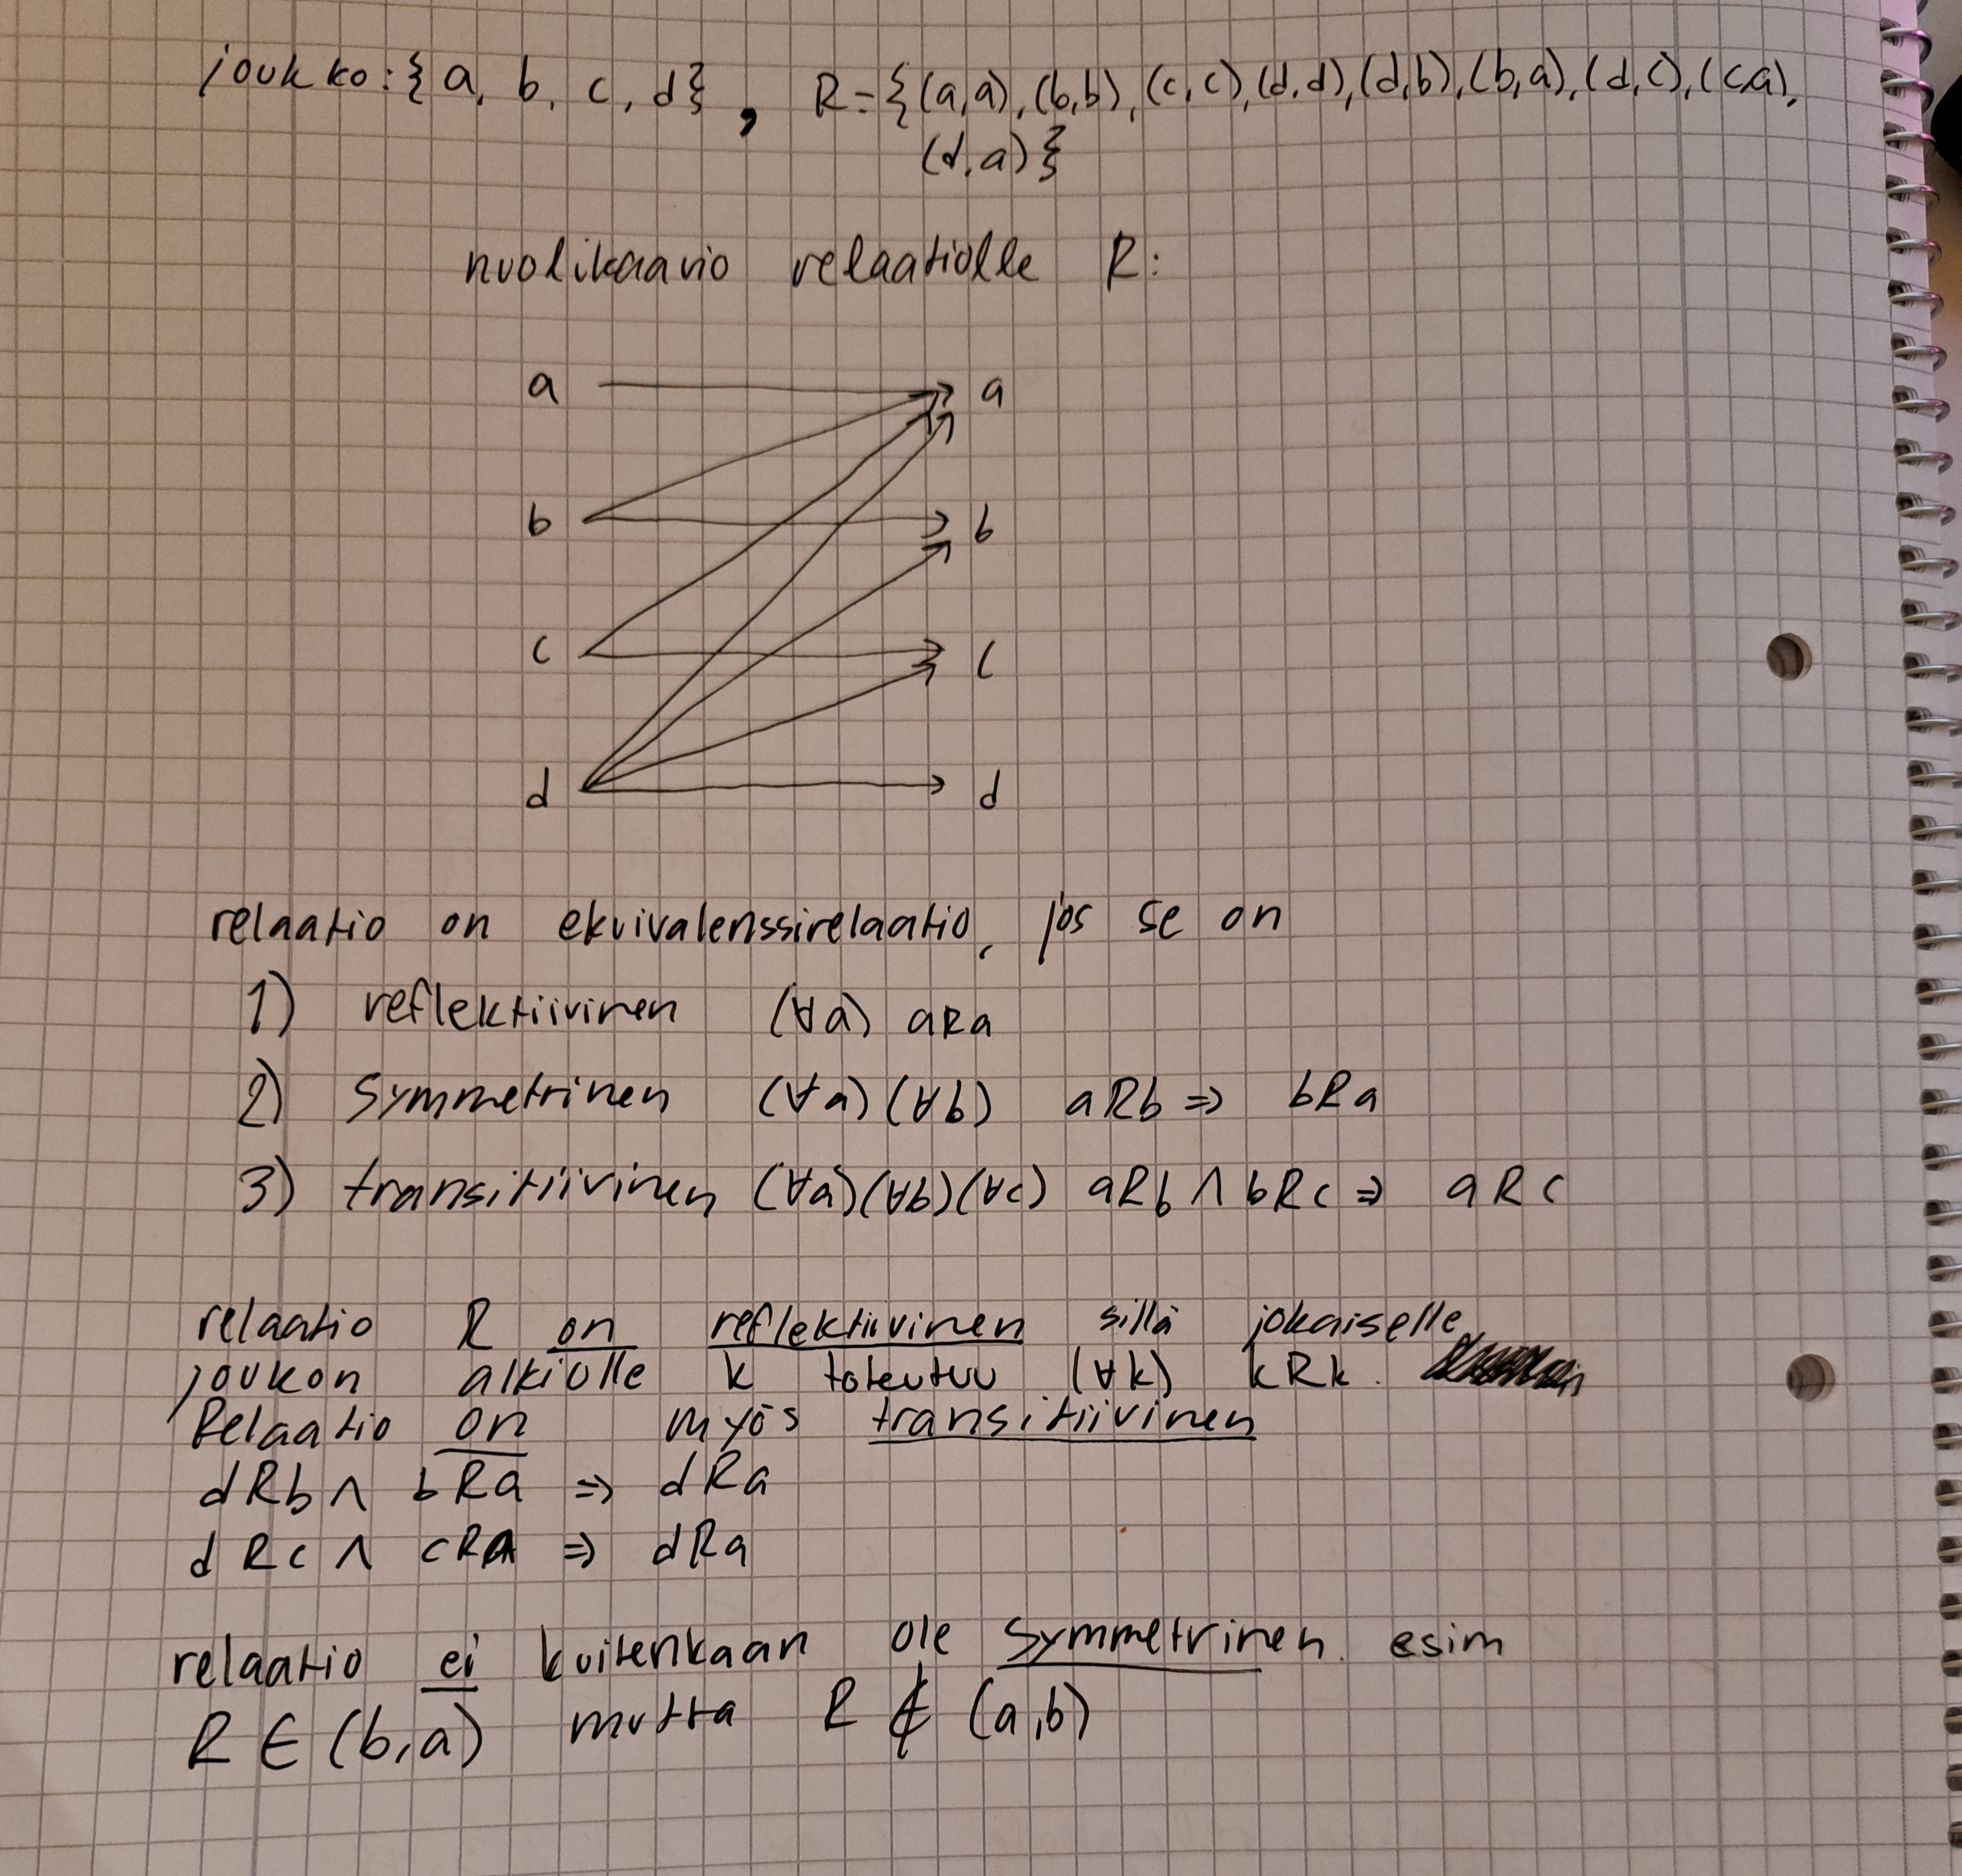 joukko: {a, b, c, d} , R = {(a,a), (b,b), (c,c), (d,d), (d,b), (b,a), (d,c), (c,a),
(d,a)}
nuolikaavio relaatiolle R:
a a
b b
c c
d d
relaatio on ekvivalenssirelaatio, jos se on
1) reflektiivinen (∀a) aRa
2) symmetrinen (∀a)(∀b) aRb ⇒ bRa
3) transitiivinen (∀a)(∀b)(∀c) aRb ∧ bRc ⇒ aRc
relaatio R on reflektiivinen sillä jokaiselle
joukon alkiolle k toteutuu (∀k) kRk.
Relaatio on myös transitiivinen
dRb ∧ bRa ⇒ dRa
dRc ∧ cRa ⇒ dRa
relaatio ei kuitenkaan ole symmetrinen. esim
R ∈ (b,a) mutta R ∉ (a,b)